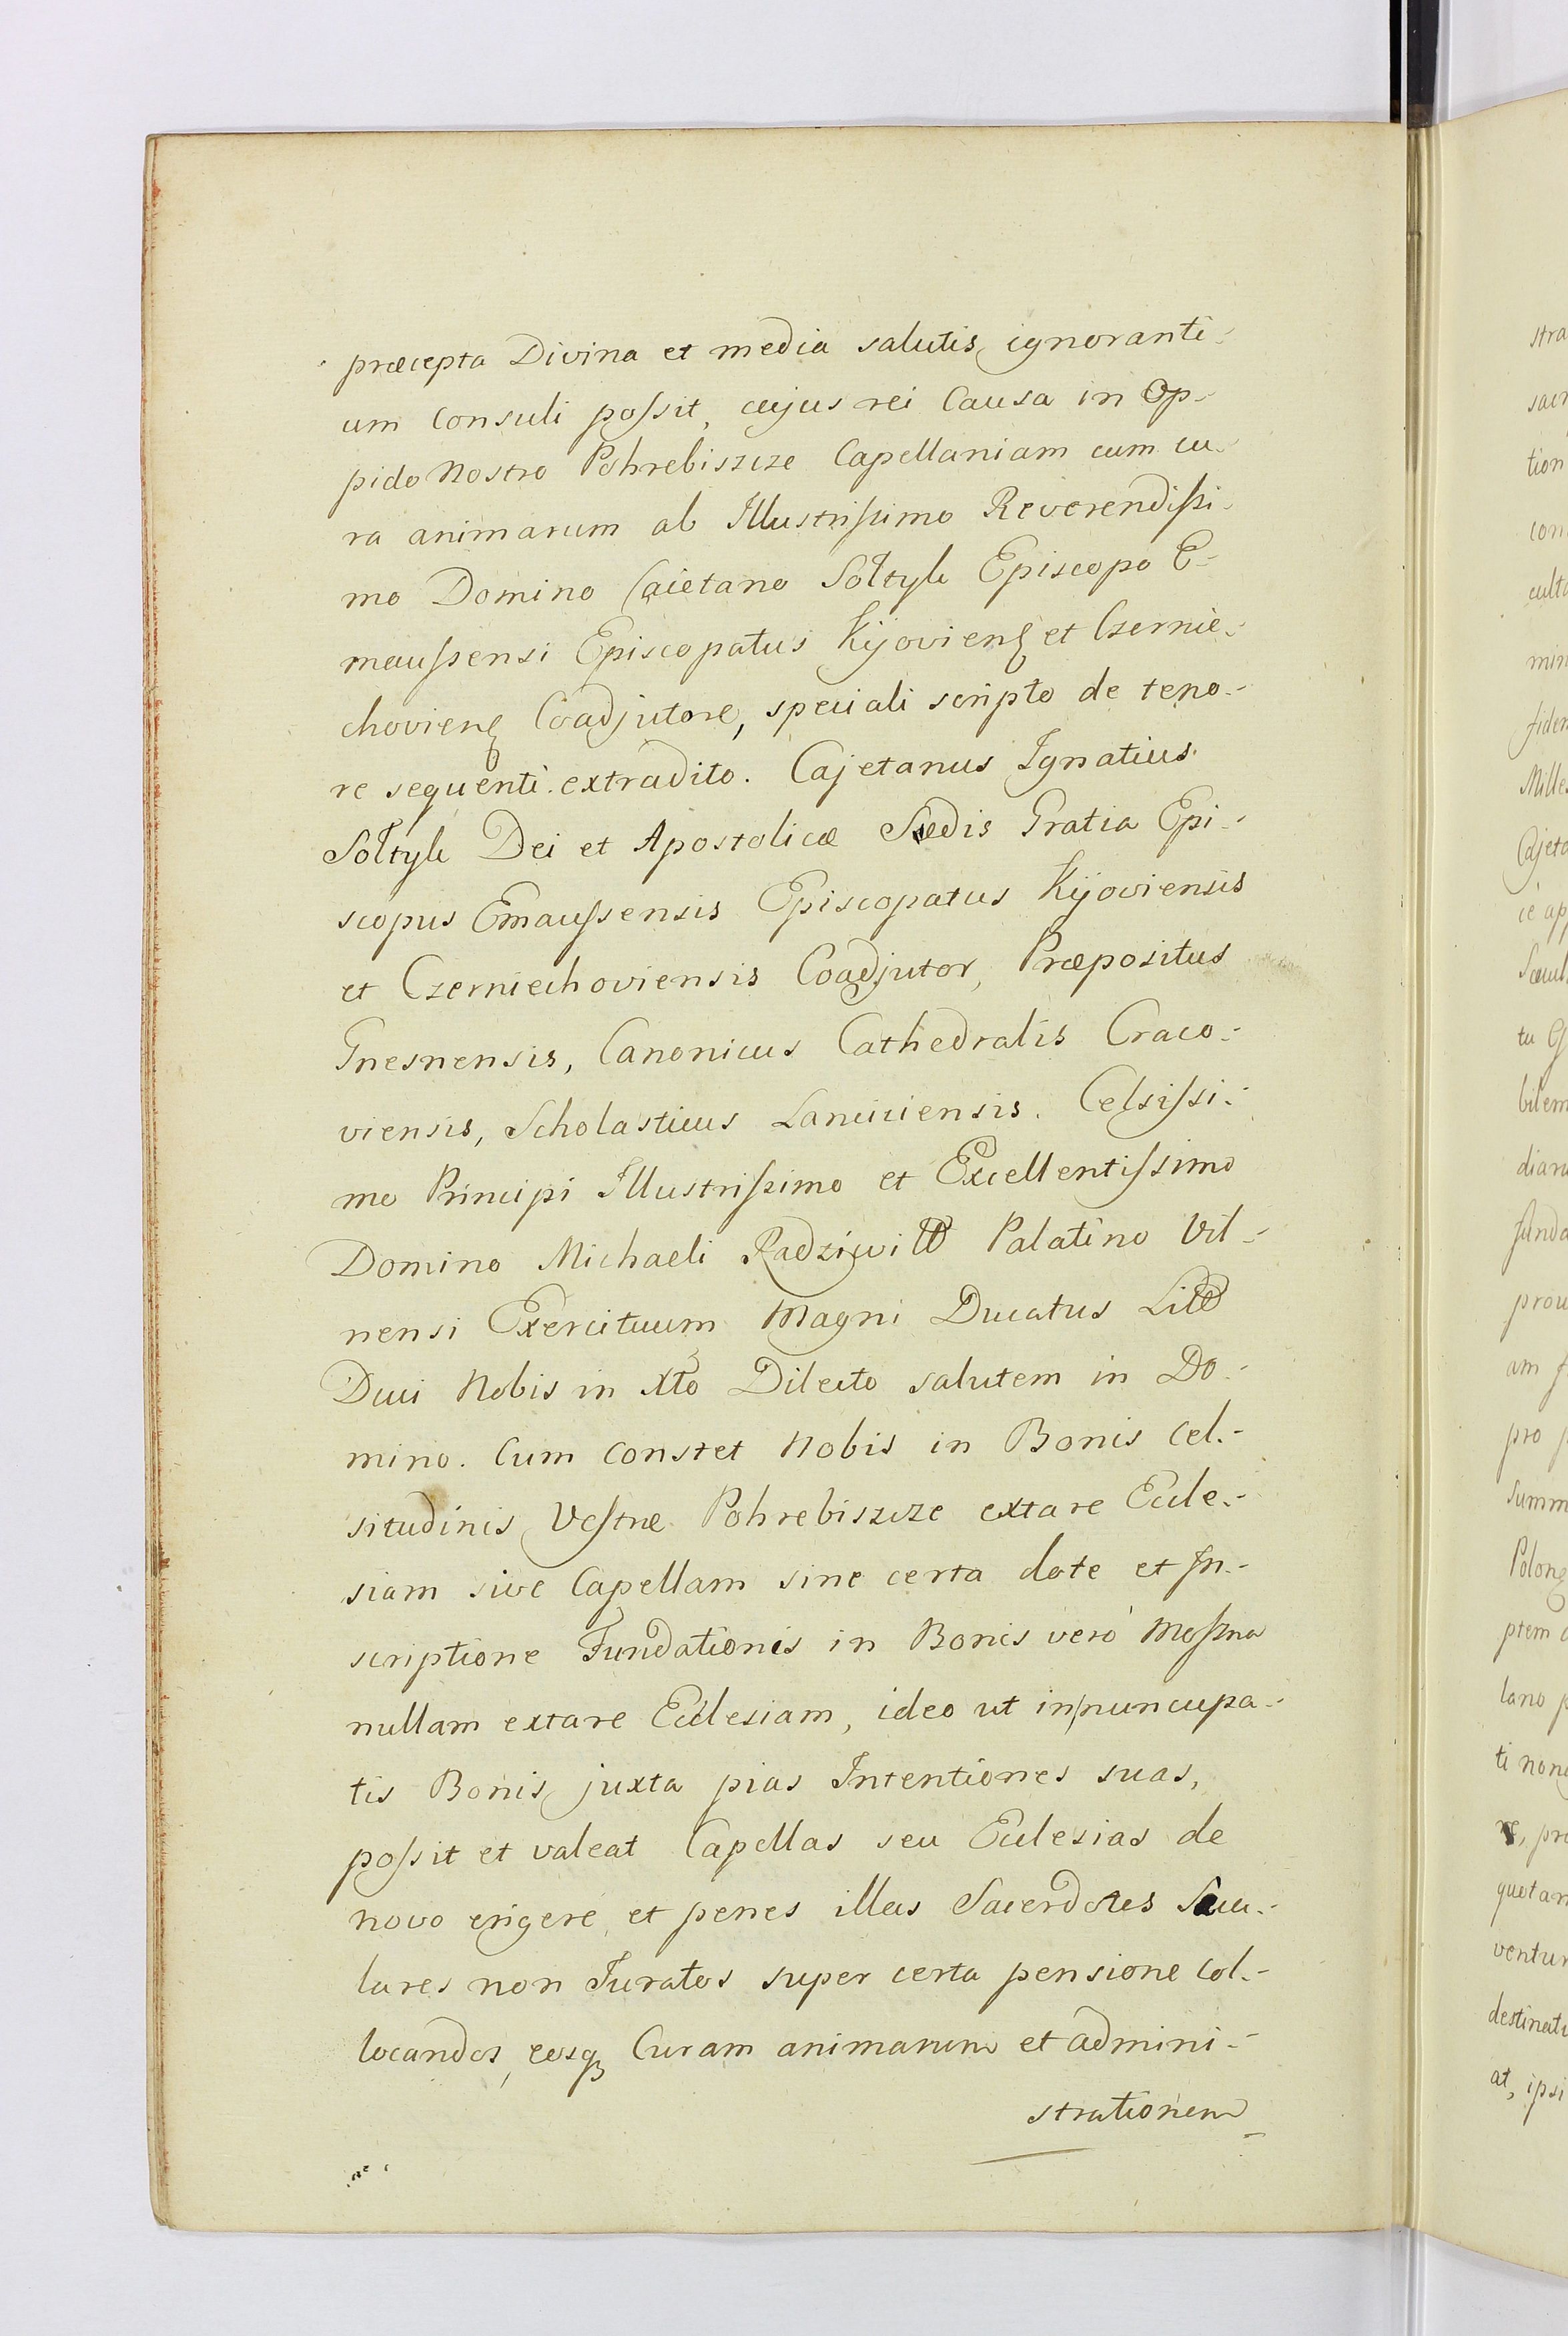 præcepta Divina et media salutis ignoranti-
um Consuli poſsit, cujus rei Causa in Op-
pido Nostro Pohrebiszcze Capellaniam cum cu-
ra animarum ab Illustriſsimo Reverendiſsi-
mo Domino Caietano Sołtyk Episcopo E-
mauſsensi Episcopatus Kijoviens et Czernie-
choviens Coadjutore, speciali scripto de teno-
re sequenti extradito. Cajetanus Ignatius
Sołtyk Dei et Apostolicæ Sædis Gratia Epi-
scopus Emauſsensis Episcopatus Kijoviensis
et Czerniechoviensis Coadjutor, Præpositus
Gnesnensis, Canonicus Cathedralis Craco-
viensis, Scholasticus Lanciciensis. Celsiſsi-
mo Principi Illustriſsimo et Excellentiſsimo
Domino Michaeli Radziwiłł Palatino Vil-
nensi Exercituum Magni Ducatus Litt
Duci Nobis in Xto Dilecto salutem in Do-
mino. Cum Constet Nobis in Bonis Cel-
situdinis Veſtræ Pohrebiszcze extare Eccle-
siam sive Capellam sine certa dote et In-
scriptione Fundationis in Bonis verò Moſzna
nullam extare Ecclesiam, ideo ut in nuncupa-
tis Bonis juxta pias Intentiones suas,
poſsit et valeat Capellas seu Ecclesias de
novo erigere, et penes illas Sacerdotes Sæcu-
lares non Juratos super certa pensione Col-
locandos, eosq Curam animarum et admini-
strationem
stra
sacr
tion
con
culta
min
fidem
Milles
Cajeta
ie app
Sæcul
tu
bilem
diam
funda
prou
am f
pro
summ
Polon
ptem
lano p
ti non
re, pro
quotan
ventur
destinati
at, ipsi